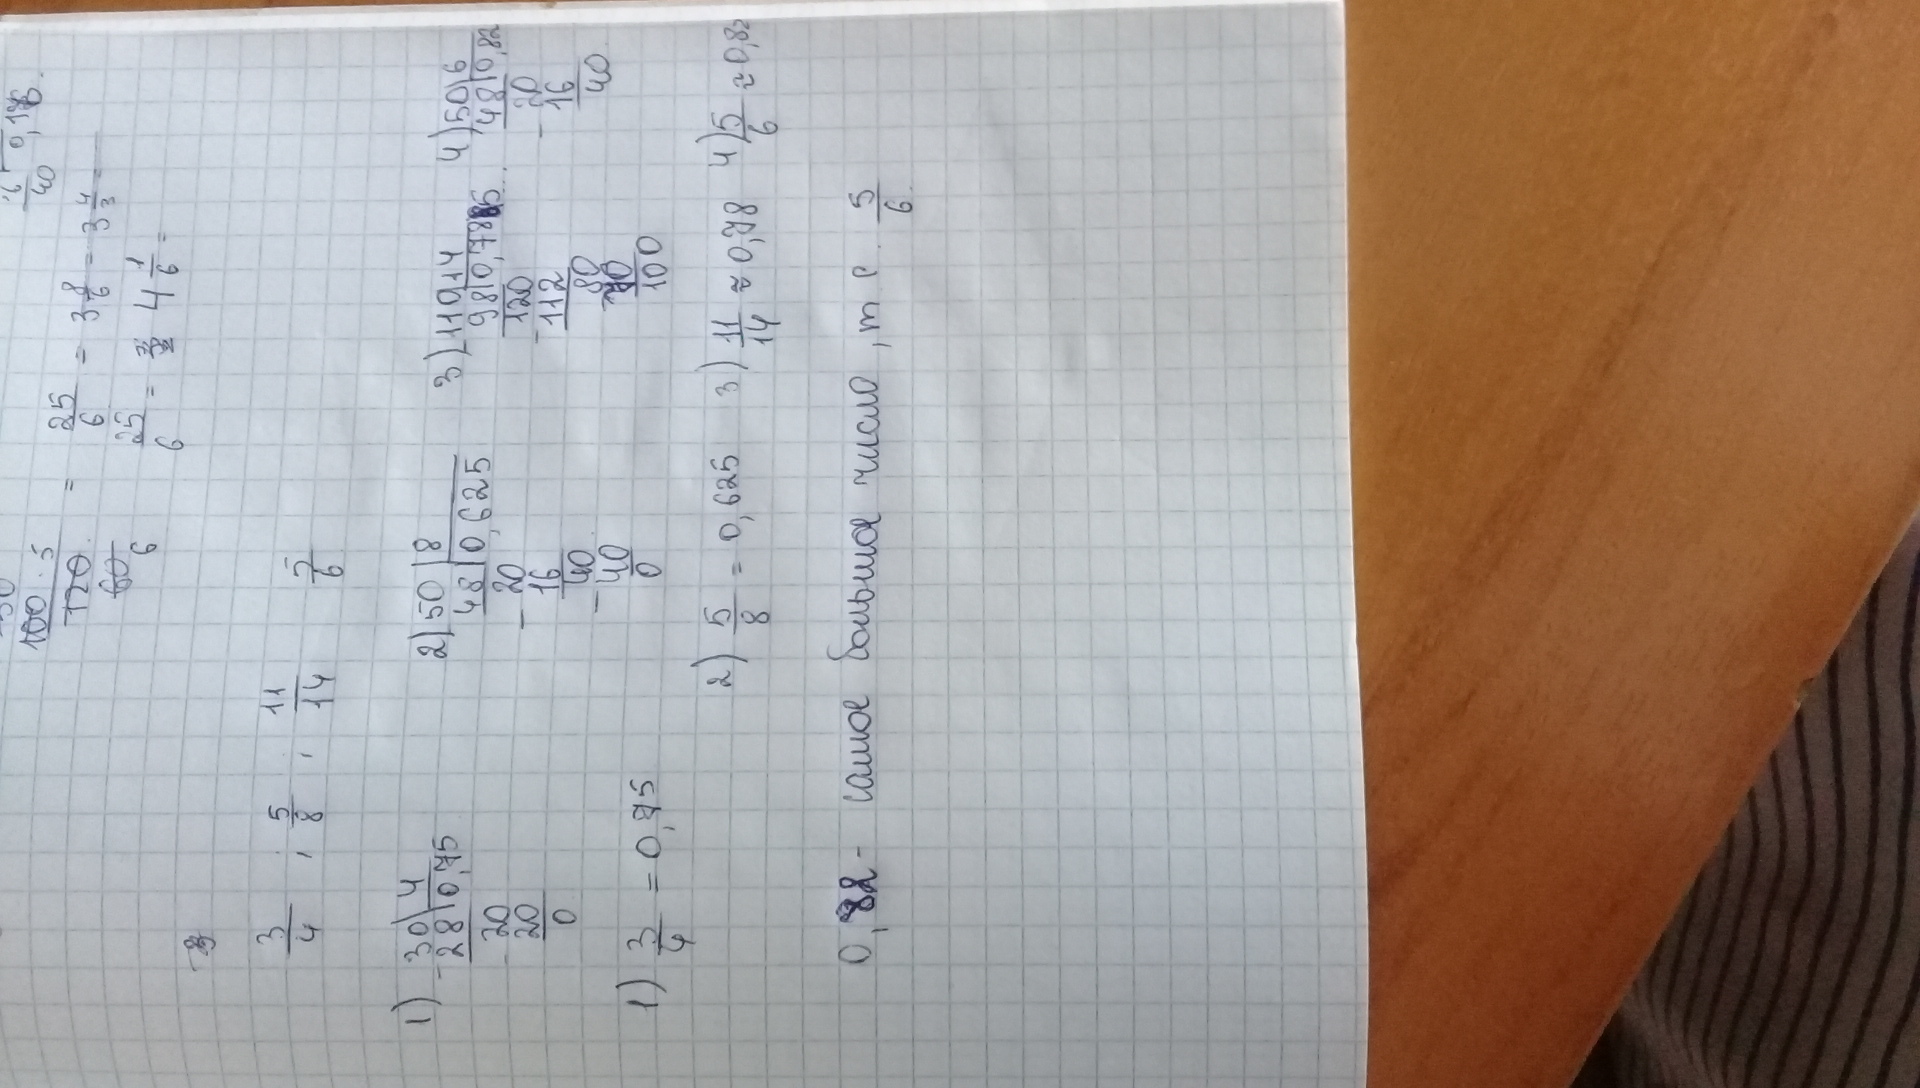 100 · 5 / 120 = 25/6 = 3 8/6 = 3 4/3 =
60
6
25/6 = 4 1/6 =
40
3/4 , 5/8 , 11/14 5/6
1) 30 | 4
- 28 | 0,75
- 20
20
0
2) 50 | 8
48 | 0,625
- 20
16
40
- 40
0
3) 110 | 14
98 | 0,785...
120
- 112
80
70
100
4) 50 | 6
48 | 0,82
- 20
16
40
1) 3/4 = 0,75
2) 5/8 = 0,625 3) 11/14 ≈ 0,78 4) 5/6 ≈ 0,82
0,82 - самое большое число , т е. 5/6.